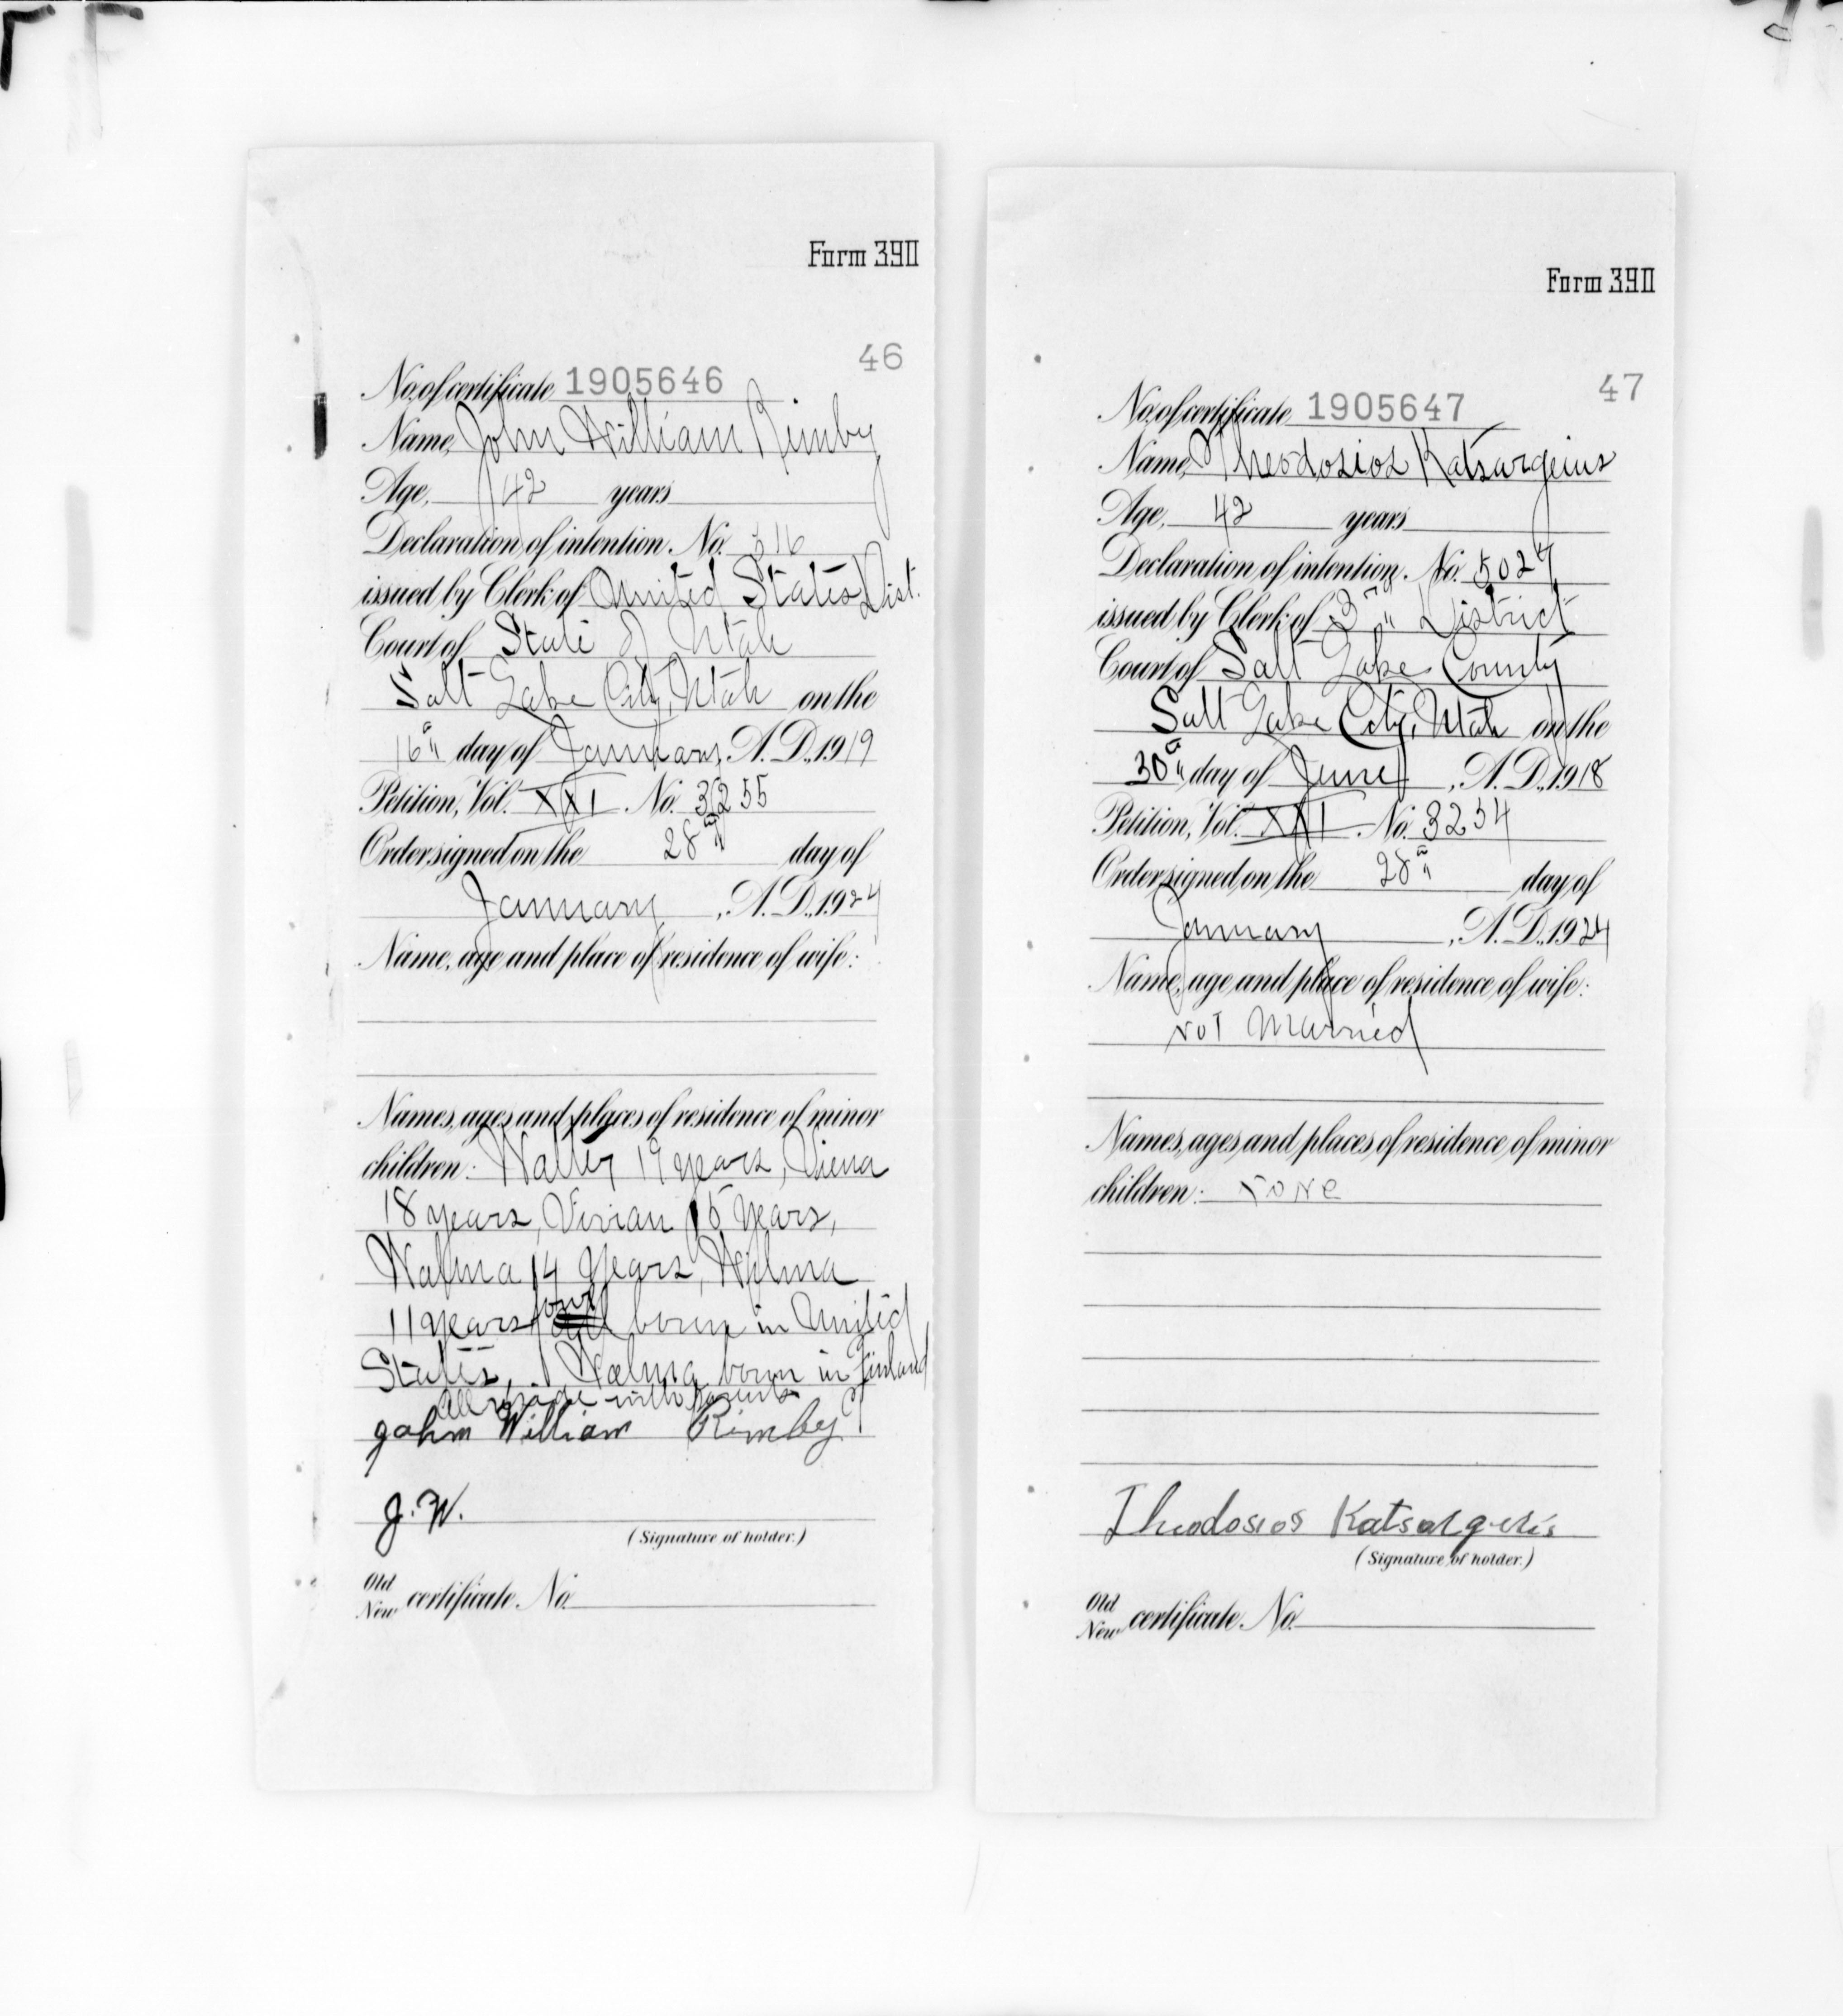 Form 390
46
No. of certificate 1905646
Name, John William Rimby
Age, 42 years
Declaration of intention No. 516
issued by Clerk of United States Dist.
Court of State of Utah
Salt Lake City, Utah on the
16" day of January, A.D., 1919
Petition, Vol. XXI No. 3255
Order signed on the 28" day of
January, A.D., 1924
Name, age and place of residence of wife:
Names, ages and places of residence of minor
children: 19 years,
18 years, Vivian 15 years,
14 years,
11 years four born in United
States, born in Finland
All reside with parents
John William Rimby
J. W.
(Signature of holder.)
Old
New certificate No.
Form 390
47
No. of certificate 1905647
Name, Theodosios
Age, 42 years
Declaration of intention No. 5024
issued by Clerk of 3rd District
Court of Salt Lake County
Salt Lake City, Utah on the
30" day of June, A.D., 1918
Petition, Vol. XXI No. 3254
Order signed on the 28" day of
January, A.D., 1924
Name, age and place of residence of wife:
Not Married
Names, ages and places of residence of minor
children: None
Theodosios Katsargeris
(Signature of holder.)
Old
New certificate No.